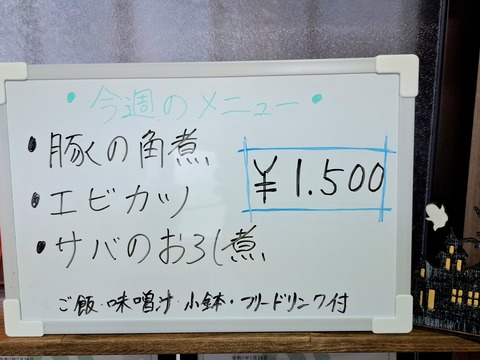 ・今週のメニュー・
・豚くの角煮
・エビカツ
¥1.500
・サバのおろし煮
ご飯・味噌汁 小鉢・フリードリンク付